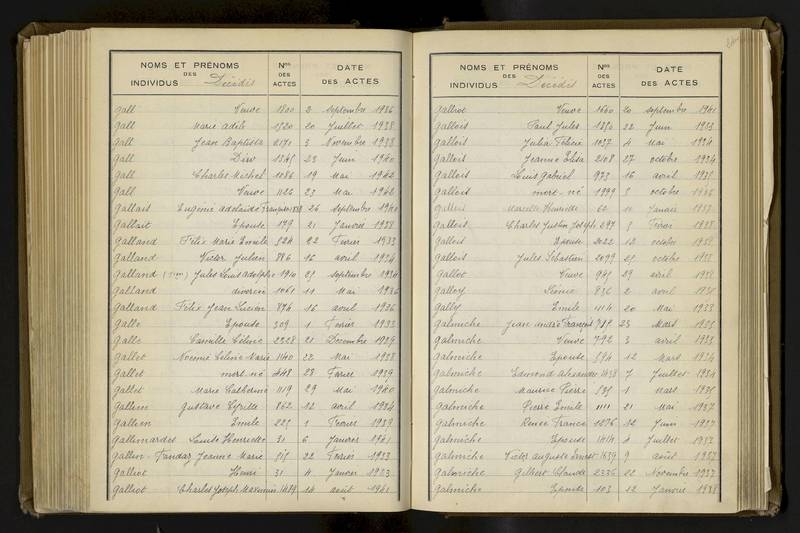 NOMS ET PRÉNOMS
DES
INDIVIDUS Décédés
Nos
DES
ACTES
DATE
DES ACTES
Gall Veuve 1800 2 Septembre 1936
Gall Marie Adèle 1520 20 Juillet 1938
Gall Jean Baptiste 2171 3 Novembre 1938
Gall Div 1345 23 Juin 1940
Gall Charles Michel 1086 19 Mai 1942
Gall Veuve 1126 23 Mai 1942
Gallais Eugénie Adelaïde Françoise 26 Septembre 1940
Gallait Epouse 179 21 Janvier 1938
Galland Félix Marie Emile 524 22 Fevrier 1933
Galland Victor Julien 886 16 avril 1934
Galland Jules Louis Adolphe 1910 21 Septembre 1934
Galland divorcée 1061 11 Mai 1936
Galland Félix Jean Lucien 874 16 avril 1936
Galle Epouse 309 1 Fevrier 1933
Galle Camille Céline 2328 21 Decembre 1929
Gallet Noemie Céline Marie 1140 22 Mai 1938
Gallet mort-né 448 28 Fevrier 1939
Gallet Marie Catherine 1119 29 Mai 1940
Gallien Gustave Cyrille 862 12 avril 1934
Gallien Emile 225 1 Fevrier 1939
Gallimardet Louise Henriette 31 6 Janvier 1941
Gallin-Tandaz Jeanne Marie 22 Fevrier 1933
Galliot Henri 31 4 Janvier 1933
Galliot Charles Joseph Maxemin 1489 14 août 1941
NOMS ET PRÉNOMS
DES
INDIVIDUS Décédés
Nos
DES
ACTES
DATE
DES ACTES
Galliot Veuve 1660 20 Septembre 1941
Gallois Paul Jules 1250 22 Juin 1933
Gallois Julia Felicie 1037 4 Mai 1934
Gallois Jeanne Elisa 2108 27 octobre 1934
Gallois Louis Gabriel 973 16 avril 1935
Gallois mort-né 1999 3 octobre 1936
Gallois Marcelle Henriette 62 10 Janvier 1937
Gallois Charles Justin Joseph 297 3 Fevrier 1938
Gallois Epouse 2022 12 octobre 1938
Gallois Jules Sébastien 2099 25 octobre 1938
Gallot Veuve 29 avril 1938
Galloy 836 2 avril 1935
Gally Emile 1114 20 Mai 1933
Galmiche Jean André François 23 Mars 1935
Galmiche Veuve 792 3 avril 1933
Galmiche Epouse 594 12 Mars 1934
Galmiche Edmond Alexandre 1438 7 Juillet 1934
Galmiche Maurice Pierre 535 1 Mars 1935
Galmiche Pierre Emile 1111 21 Mai 1937
Galmiche René France 1276 12 Juin 1937
Galmiche Epouse 1414 4 Juillet 1937
Galmiche Victor Auguste Ernest 1639 9 août 1937
Galmiche Gilbert Claude 2336 22 Novembre 1937
Galmiche Epouse 103 12 Janvier 1938